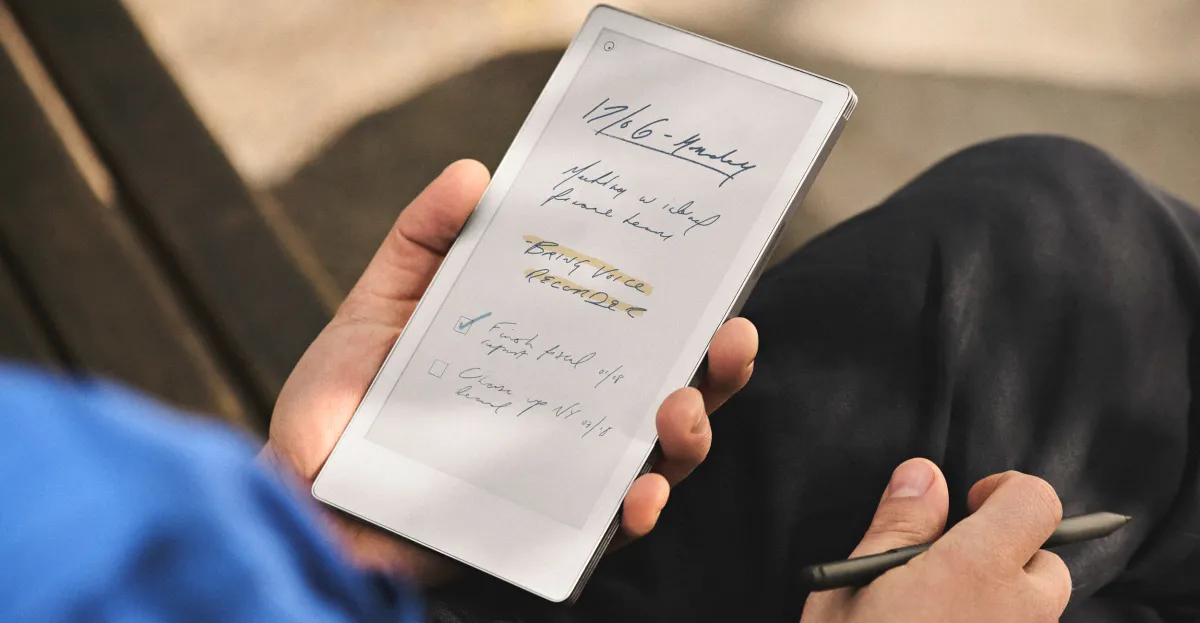 17/06 - Monday
Meeting w
finance team
BRING VOICE
RECORDER
Finish fiscal 01/08
report
Close up NY